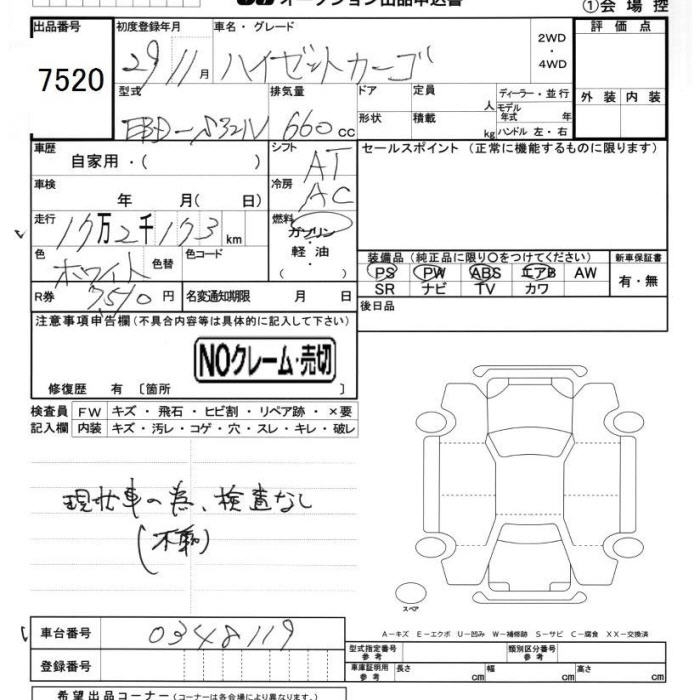 オークション出品申込書
①会場控
出品番号 初度登録年月 車名・グレード 評価点
7520 29 11月 ハイゼットカーゴ 2WD・4WD
型式 排気量 ドア 定員 人 ディーラー・並行 外装 内装
EBD-S321V 660cc 形状 積載 kg モデル年式 年
ハンドル 左・右
車歴 シフト セールスポイント (正常に機能するものに限ります)
自家用・( ) AT
車検 冷房
年 月( 日) AC
走行 17万2千173km 燃料 ガソリン
色 色替 色コード 軽油
ホワイト ・( ) 装備品 (純正品に限り〇をつけてください) 新車保証書
PS PW ABS エアB AW 有・無
R券 7510円 名変通知期限 月 日 SR ナビ TV カワ
注意事項申告欄 (不具合内容等は具体的に記入して下さい) 後日品
NOクレーム・売切
修復歴 有 〔箇所 〕
検査員 FW キズ・飛石・ヒビ割・リペア跡・×要
記入欄 内装 キズ・汚レ・コゲ・穴・スレ・キレ・破レ
現状車の為、検査なし
(不動)
スペア
A-キズ E-エクボ U-凹み W-補修跡 S-サビ C-腐食 XX-交換済
車台番号 0348119
型式指定番号 参考 類別区分番号 参考
登録番号 車庫証明用 参考 長さ cm 幅 cm 高さ cm
希望出品コーナー (コーナーは各会場により異なります。)